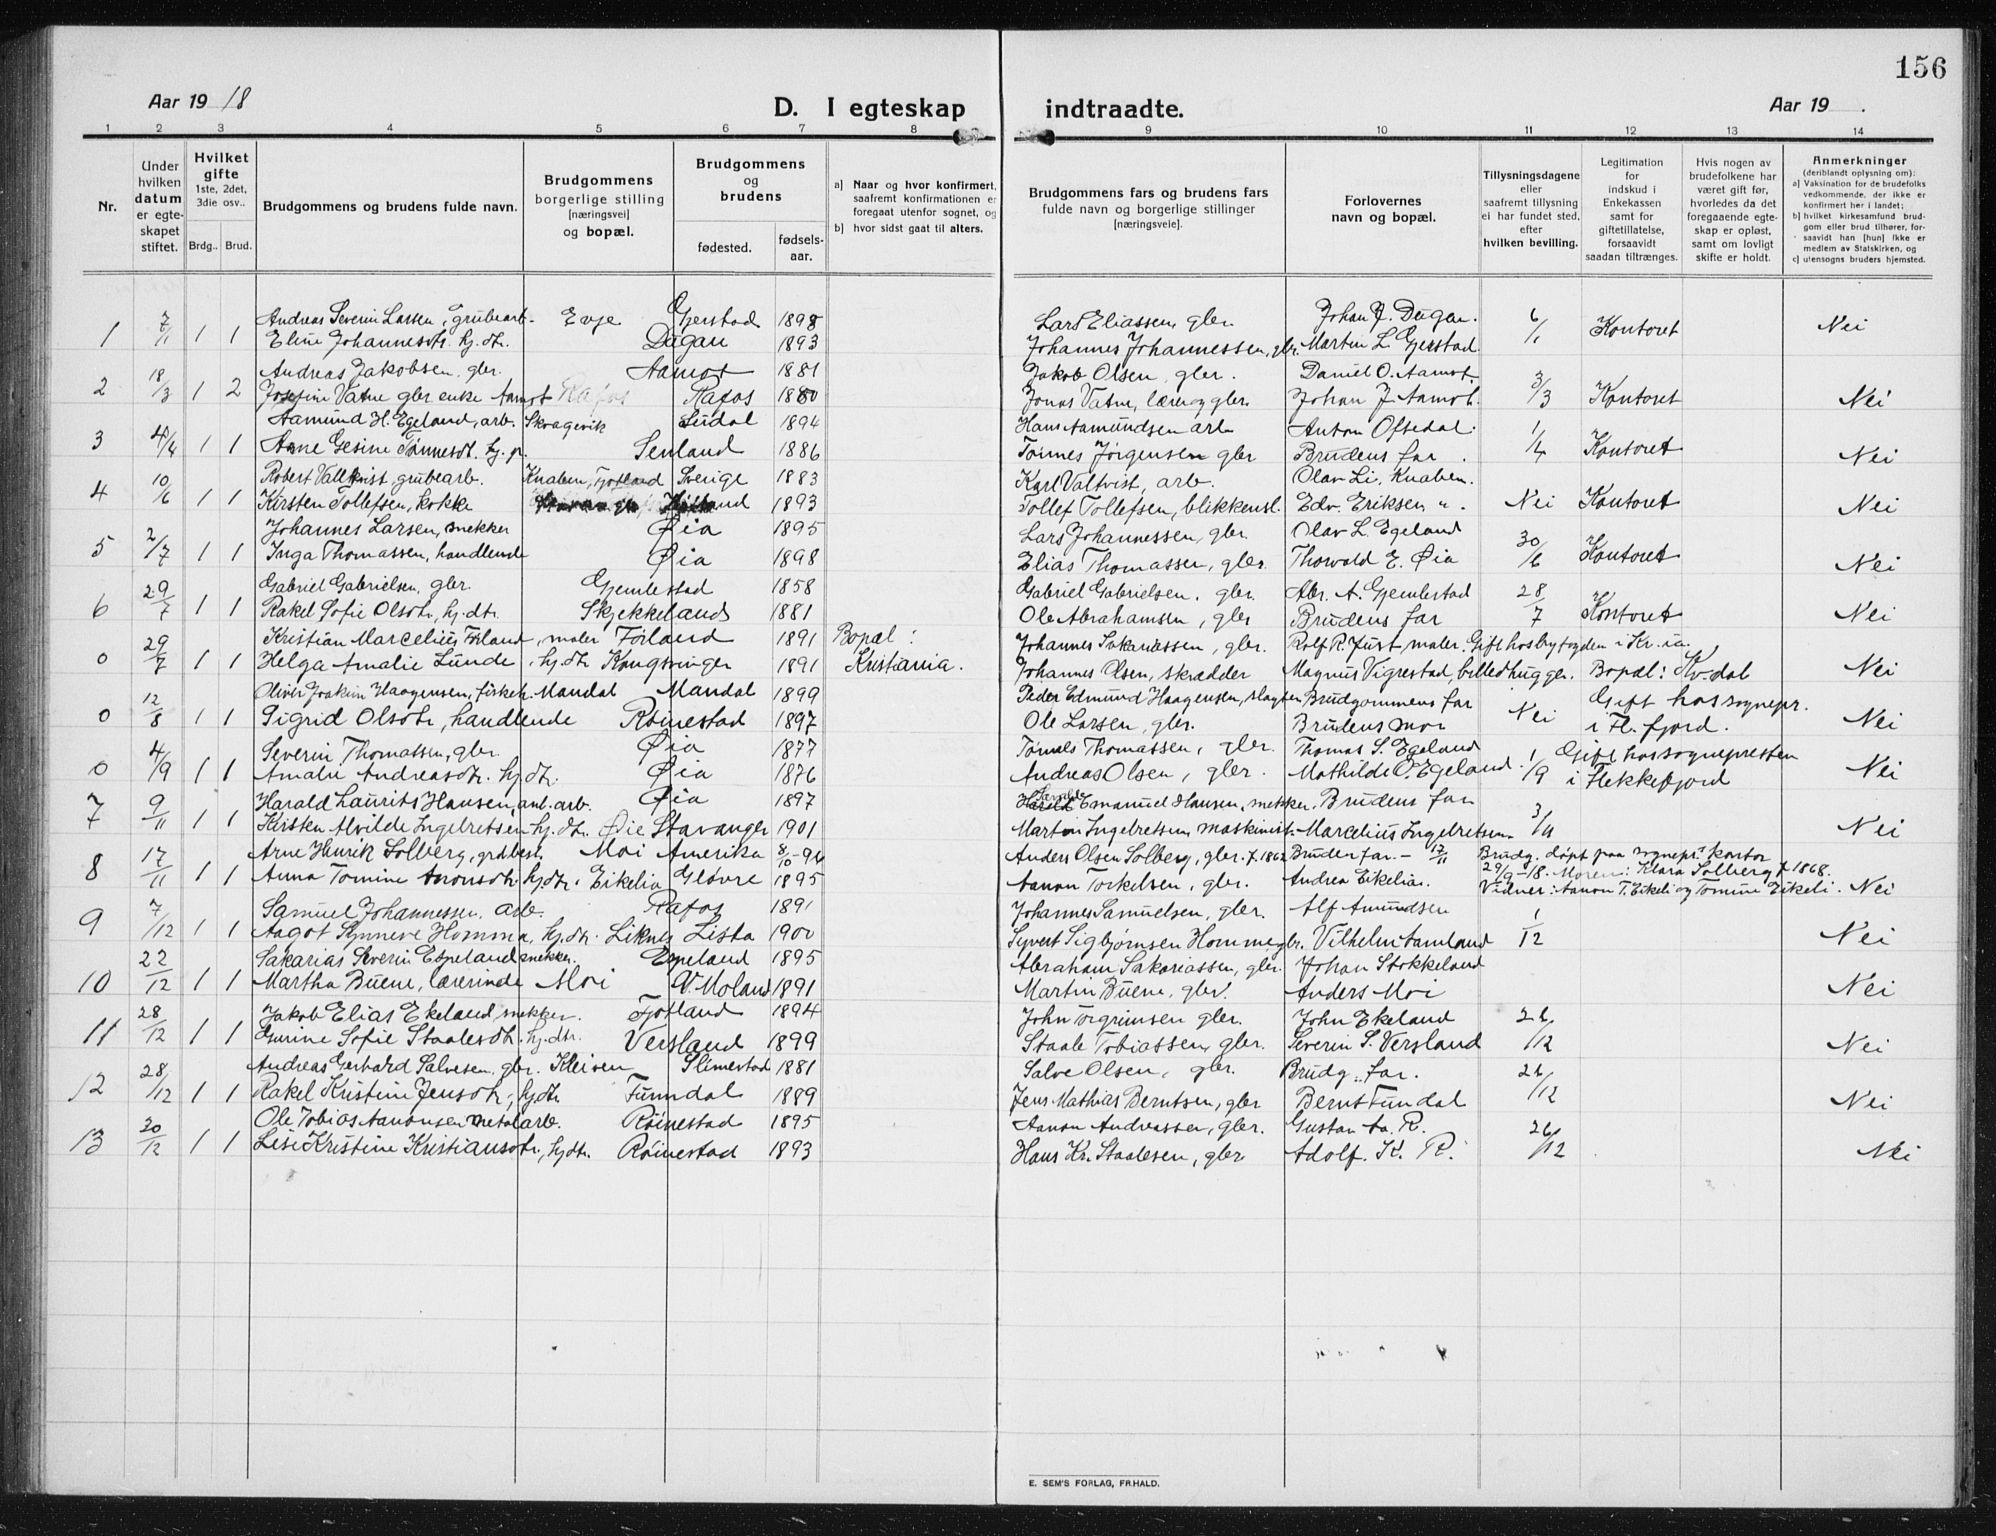 156
Aar 19 18
D. I egteskap indtraadte.
Aar 19 .
1 2 3 4 5 6 7 8 9 10 11 12 13 14
Nr.
Under hvilken datum er egteskapet stiftet.
Hvilket gifte 1ste, 2det, 3die osv..
Brdg.. Brud.
Brudgommens og brudens fulde navn.
Brudgommens borgerlige stilling [næringsvei] og bopæl.
Brudgommens og brudens
fødested. fødselsaar.
a] Naar og hvor konfirmert, saafremt konfirmationen er foregaat utenfor sognet, og
b] hvor sidst gaat til alters.
Brudgommens fars og brudens fars fulde navn og borgerlige stillinger [næringsveie].
Forlovernes navn og bopæl.
Tillysningsdagene eller saafremt tillysning ei har fundet sted, efter hvilken bevilling.
Legitimation for indskud i Enkekassen samt for giftetillatelse, forsaavidt saadan tiltrænges.
Hvis nogen av brudefolkene har været gift før, hvorledes da det foregaaende egteskap er opløst, samt om lovligt skifte er holdt.
Anmerkninger (deriblandt oplysning om):
a] Vaksination for de brudefolks vedkommende, der ikke er konfirmert her i landet;
b] hvilket kirkesamfund brudgom eller brud tilhører, forsaavidt han [hun] ikke er medlem av Statskirken, og
c] utensogns bruders hjemsted.
Andreas Severin Larsen, grubearb. Evje Gjerstad 1898 Lars Eliassen, gbr. Johan J. Dagan.
1 7/1 1 1 Eline Johannesdtr. hj. dtr. Dagan 1893 Johannes Johannessen, gbr. Martin L. Gjerstad. 6/1 Kontoret Nei
Andreas Jakobsen, gbr. Aamot 1881 Jakob Olsen, gbr. Daniel O. Aamot.
2 18/3 1 2 Josefine Vatne gbr enke Aamot Rafos 1880 Jonas Vatne, lærer og gbr. Johan J. Aamot. 3/3 Kontoret Nei
Aamund H. Egeland, arb. Skragevik Lindal 1894 Hans Aamundsen arb Anton Oftedal.
3 4/4 1 1 Anne Gesine Tønnesdt. hj. p. Senland 1886 Tønnes Jørgensen gbr Brudens far. 1/4 Kontoret Nei
Robert Valkvist, grubearb. Knaben, Fjotland Sverige 1883 Karl Valtvist, arb. Olav Li, Knaben.
4 10/6 1 1 Kirsten Tollefsen, kokke 1893 Tollef Tollefsen, blikkensl. Edv. Eriksen, ". Nei Kontoret Nei
Johannes Larsen, snekker Øia 1895 Lars Johannessen, gbr. Olav L. Egeland
5 2/7 1 1 Inga Thomassen, handlende Øia 1898 Elias Thomassen, gbr. Thorvald E. Øia 30/6 Kontoret Nei
Gabriel Gabrielsen, gbr. Gjemlestad 1858 Gabriel Gabrielsen, gbr. Abr. A. Gjemlestad
6 29/7 1 1 Rakel Sofie Olsdtr, hj. dtr. Skjekkeland 1881 Ole Abrahamsen, gbr Brudens far 28/7 Kontoret Nei
Kristian Marcelius Förland, maler Förland 1891 Bopæl: Johannes Sakariassen, gbr. Rolf R. Just, maler. Gift hos byfogden i Kr.ia.
0 29/7 1 1 Helga Amalie Lunde, hj. dtr Kongsvinger 1891 Kristiania. Johannes Olsen, skrædder Magnus Vigrestad, billedhugger. Bopæl: Kv.dal Nei
Oliver Joakim Haagensen, fiskeh. Mandal Mandal 1899 Peder Edmund Haagensen, slagter Brudgommens far Gift hos sognepr.
0 12/8 1 1 Sigrid Olsdtr, handlende Röinestad 1897 Ole Larsen, gbr. Brudens mor Nei i Fl. fjord. Nei
Severin Thomassen, gbr. Øia 1877 Thomassen, gbr. Thomas S. Egeland Gift hos sognepresten
0 4/9 1 1 Amalie Andreasdtr. hj. dtr. Øia 1876 Andreas Olsen, gbr. Mathilde O. Egeland. 1/9 i Flekkefjord Nei
Harald Laurits Hansen, anl. arb. Øia 1897 Emanuel Hansen, snekker. Brudens far
7 9/11 1 1 Kirsten Alvilde Ingebretsen hj. dtr. Øie Stavanger 1901 Marton Ingebretsen, maskinist. Marcelius Ingebretsen 3/11 Nei
Arne Henrik Solberg, grubest. Moi Amerika 8/10-94 Anders Olsen Solberg, gbr. f. 1862 Brudens far. - 17/11 Brudg. døpt paa sognepr. kontor
8 17/11 1 1 Anna Tomine Aronsdtr hj.dtr. Eikelia Gløvre 1895 Aanon Torkelsen, gbr. Andrea Eikelia. 29/9-18. Moren: Klara Solberg f. 1868.
Vidner: Aanon T. Eikeli og Tomine Eikeli. Nei
Samuel Johannessen, arb. Rafos 1891 Johannes Samuelsen, gbr. Alf Amundsen
9 7/12 1 1 Aagot Synneve Homme, hj. dtr. Liknes Lista 1900 Syvert Sigbjørnsen Homme gbr. Vilhelm Aamland 1/12 Nei
Sakarias Severin Espeland snekker. Espeland 1895 Abraham Sakariassen, gbr. Johan Stokkeland
10 22/12 1 1 Martha Buene, lærerinde Moi V. Moland 1891 Martin Buene, gbr. Anders Moi Nei
Jakob Elias Ekeland, snekker Fjotland 1894 John Torgrimsen gbr. John Ekeland
11 28/12 1 1 Gurine Sofie Staalesdtr. hj. dtr. Versland 1899 Staale Tobiassen, gbr. Severin S. Versland 26/12 Nei
Andreas Gerhard Salvesen, gbr. Kleiven Slimestad 1881 Salve Olsen, gbr. Brudg. far.
12 28/12 1 1 Rakel Kristine Jensdtr, hj. dtr. Funndal 1889 Jens Mathias Berntsen, gbr Bernt Fundal 26/12 Nei
Ole Tobias Aanonsen metalarb. Röinestad 1895 Aanon Andreassen, gbr. Gustav Aa. R.
13 30/12 1 1 Lise Kristine Kristiansdtr, hj dtr. Röinestad 1893 Hans Kr. Staalesen, gbr Adolf. K. R. 26/12 Nei
E. SEM'S FORLAG, FR.HALD.